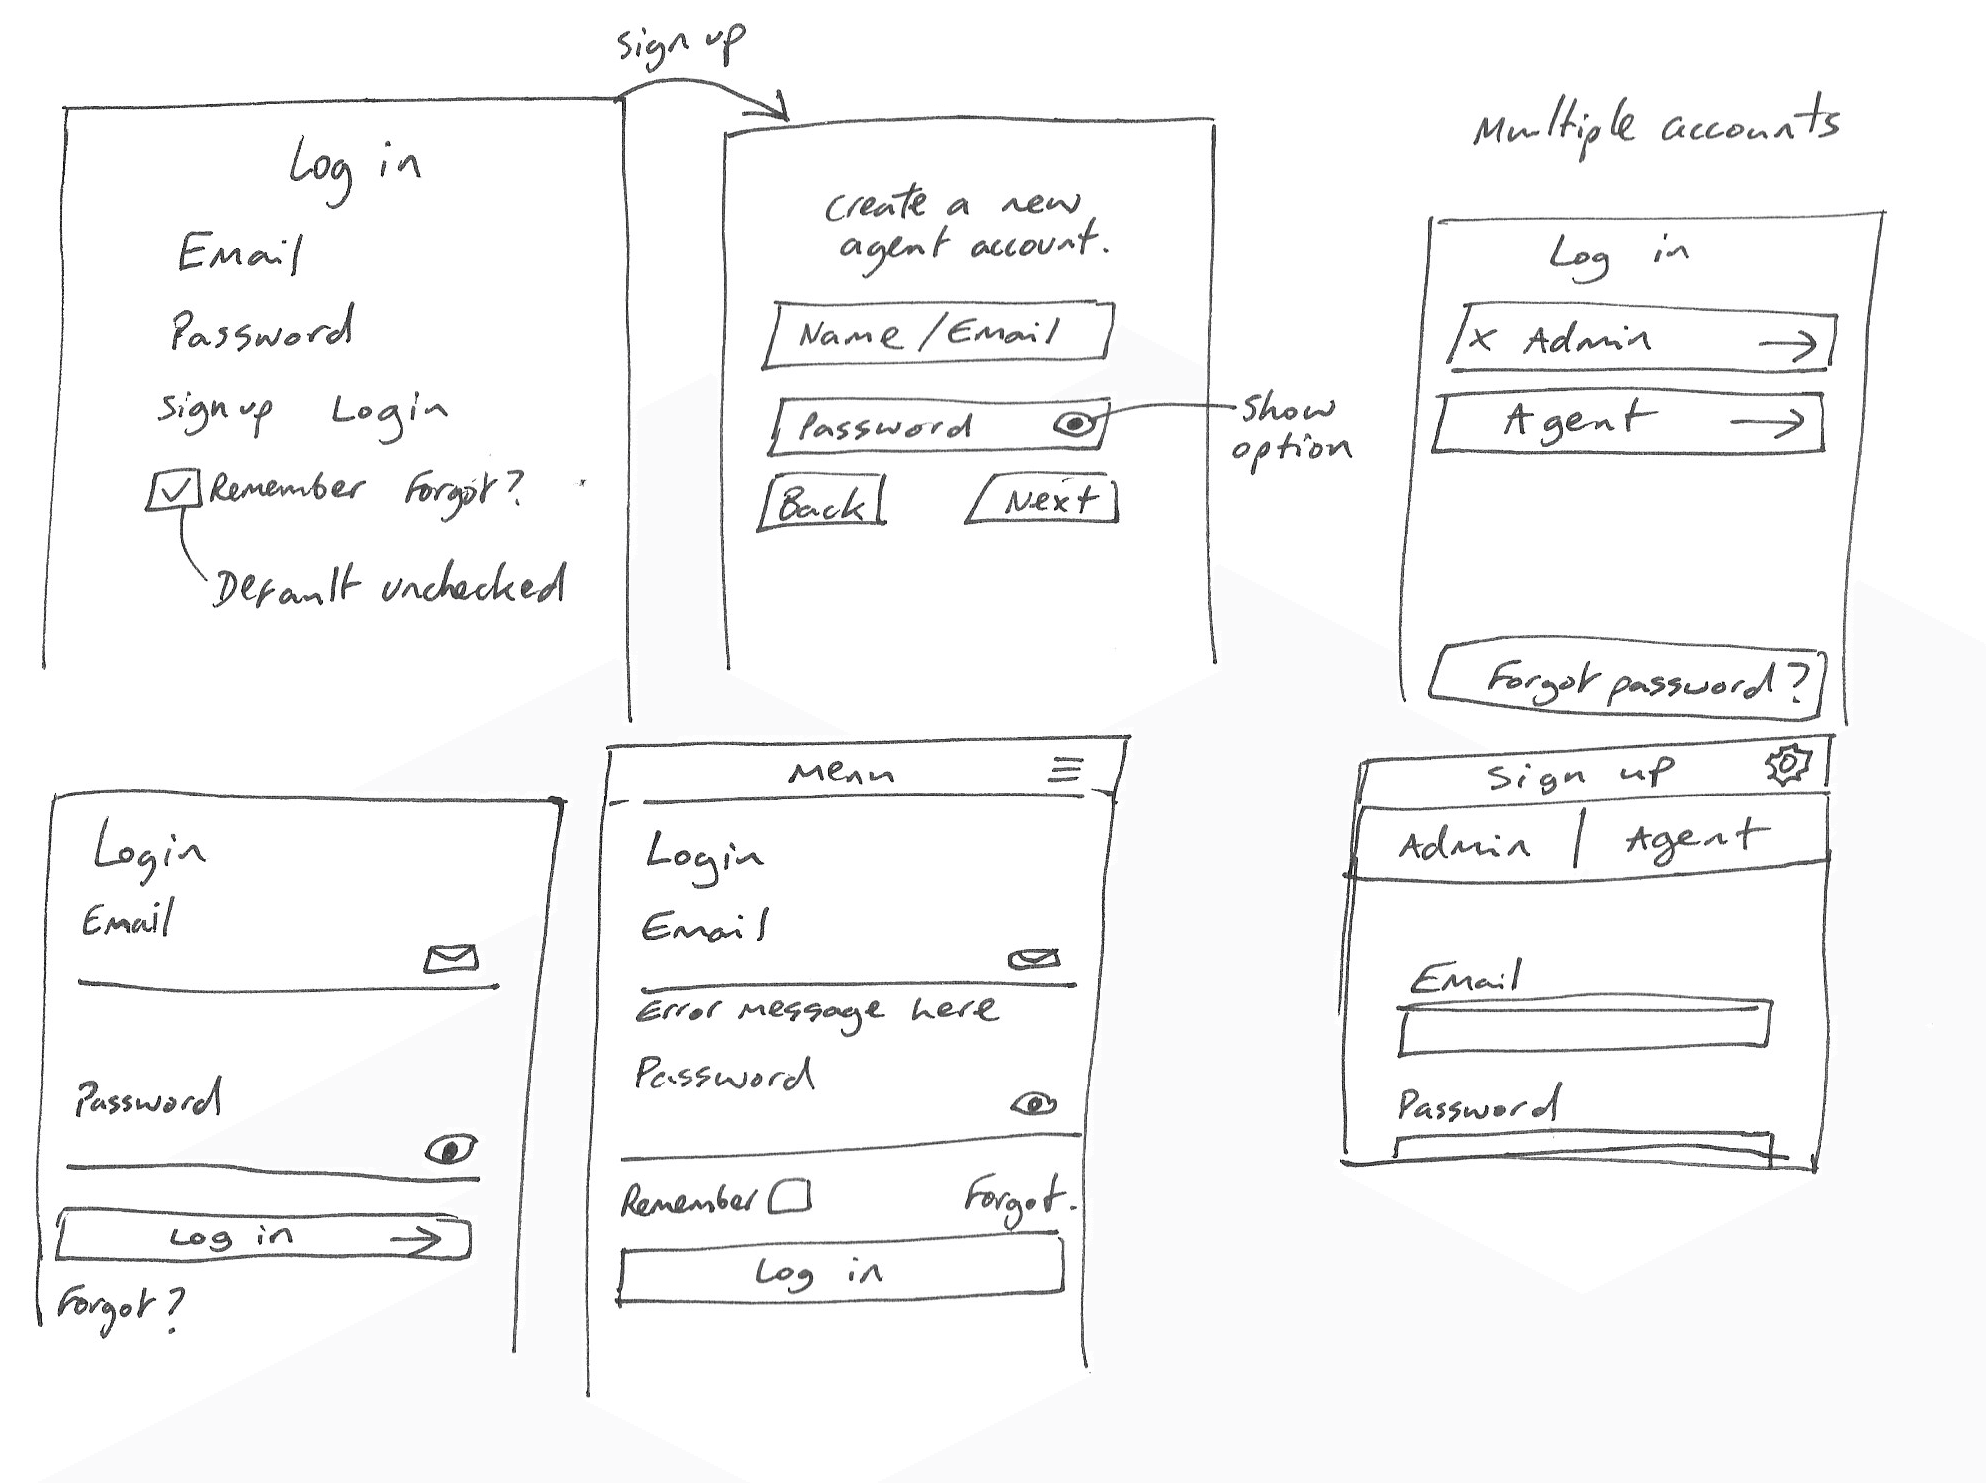 sign up
Log in
Email
Password
sign up Login
Remember Forgot?
Default unchecked
create a new
agent account.
Name / Email
Password
show
option
Back Next
Multiple accounts
Log in
x Admin
Agent
Forgot password?
Login
Email
Password
Log in
Forgot?
Menu
Login
Email
Error message here
Password
Remember Forgot.
Log in
Sign up
Admin | Agent
Email
Password